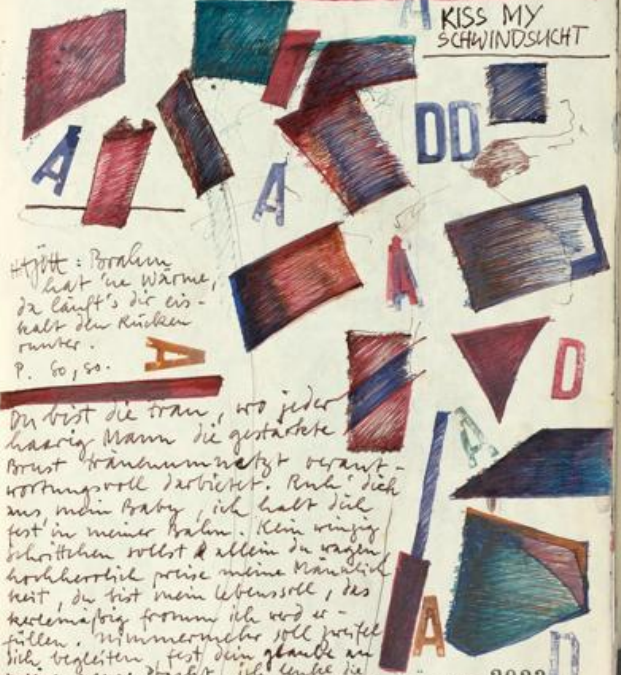 A
KISS MY
SCHWINDSUCHT
A
DD
A
Brahm
hat 'ne Wärme,
da läuft's dir eis-
kalt den Rücken
runter.
P. 80,80.
A
A
D
Du bist die Frau, wo jeder
haarig Mann die gestärkte
Brust tränenumnetzt verant-
wortungsvoll darbietet. Ruh' dich
aus, mein Baby, ich halt dich
fest in meiner Bahn. Kein winzig
Schrittchen sollst allein du wagen
hochherrlich preise meine Männlich
keit, du bist mein Lebenssoll, das
kerlemäßig fromm ich werd er-
füllen. Nimmermehr soll Zweifel
dich begleiten, fest dein Glaube an
ich lenke die
A
A
D